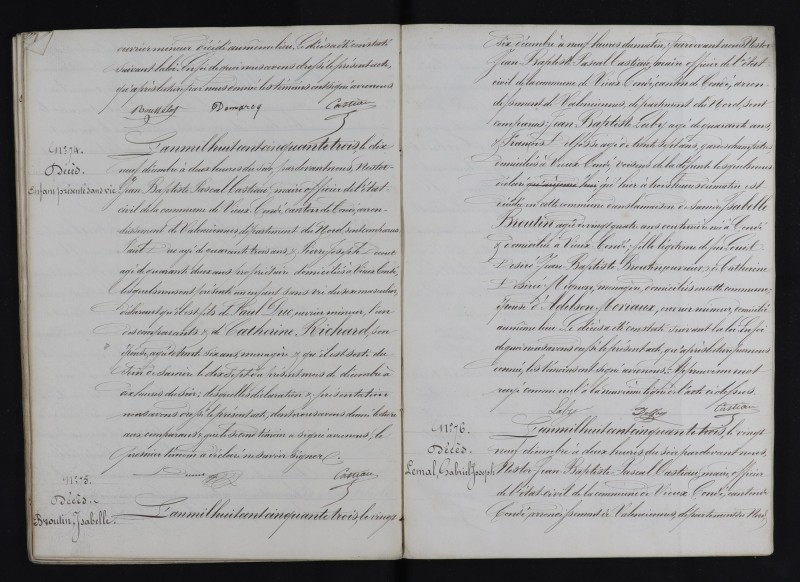 ouvrier mineur décédé au même lieu. Le décès a été constaté
suivant la loi. En foi de quoi nous avons dressé le présent acte,
qu'après lecture par nous, ont les témoins signé avec nous
Castiau
N° 74.
Décès.
Enfant présenté sans vie
L'an mil huit cent cinquante trois, le dix
neuf décembre à deux heures du soir, pardevant nous, Nestor
Jean Baptiste Pascal Castiau, maire officier de l'état
civil de la commune de Vieux Condé, canton de Condé, arron-
dissement de Valenciennes, département du Nord, sont comparus
Paul Duc agé de quarante trois ans & Pierre Joseph
agé de quarante deux ans propriétaire domiciliés à Vieux Condé,
lesquels nous ont présenté un enfant sans vie du sexe masculin,
déclarant qu'il est fils de Paul Duc, ouvrier mineur, l'un
des comparants & de Catherine Richard, son
épouse, agée de trente six ans, ménagère & qu'il est sorti du
sein de sa mère le dix sept du présent mois de décembre à
heures du soir; desquelles déclaration & présentation
nous avons dressé le présent acte, dont nous avons donné lecture
aux comparants, que le second témoin a signé avec nous, le
premier témoin a déclaré ne savoir signer.
Castiau
N° 75.
Décès.
Broutin, Isabelle.
L'an mil huit cent cinquante trois, le vingt
six décembre à neuf heures du matin, pardevant nous Nestor
Jean Baptiste Pascal Castiau, maire officier de l'état
civil de la commune de Vieux Condé, canton de Condé, arron-
dissement de Valenciennes, département du Nord, sont
comparus Jean Baptiste Laby agé de quarante ans,
& François agé de trente six ans, gardes champêtres
domiciliés à Vieux Condé, voisins de la défunte lesquels nous
ont déclaré que hier à trois heures du matin est
décédée en cette commune dans la maison Isabelle
Broutin agée de vingt quatre ans née à Condé
& domiciliée à Vieux Condé, fille légitime de feu Louis
Désiré Jean Baptiste Broutin & de Catherine
Désirée ménagère, domiciliée en cette commune,
épouse d'Adelson Moriaux, ouvrier mineur, domicilié
au même lieu. Le décès a été constaté suivant la loi. En foi
de quoi nous avons dressé le présent acte, qu'après lecture par nous
ont les témoins signé avec nous. Approuvé un mot
rayé comme nul à la neuvième ligne de l'acte ci dessus.
Laby Castiau
N° 76.
Décès.
Lemal, Gabriel Joseph
L'an mil huit cent cinquante trois, le vingt
neuf décembre à deux heures du soir pardevant nous,
Nestor Jean Baptiste Pascal Castiau, maire, officier
de l'état civil de la commune de Vieux Condé, canton de
Condé, arrondissement de Valenciennes, département du Nord